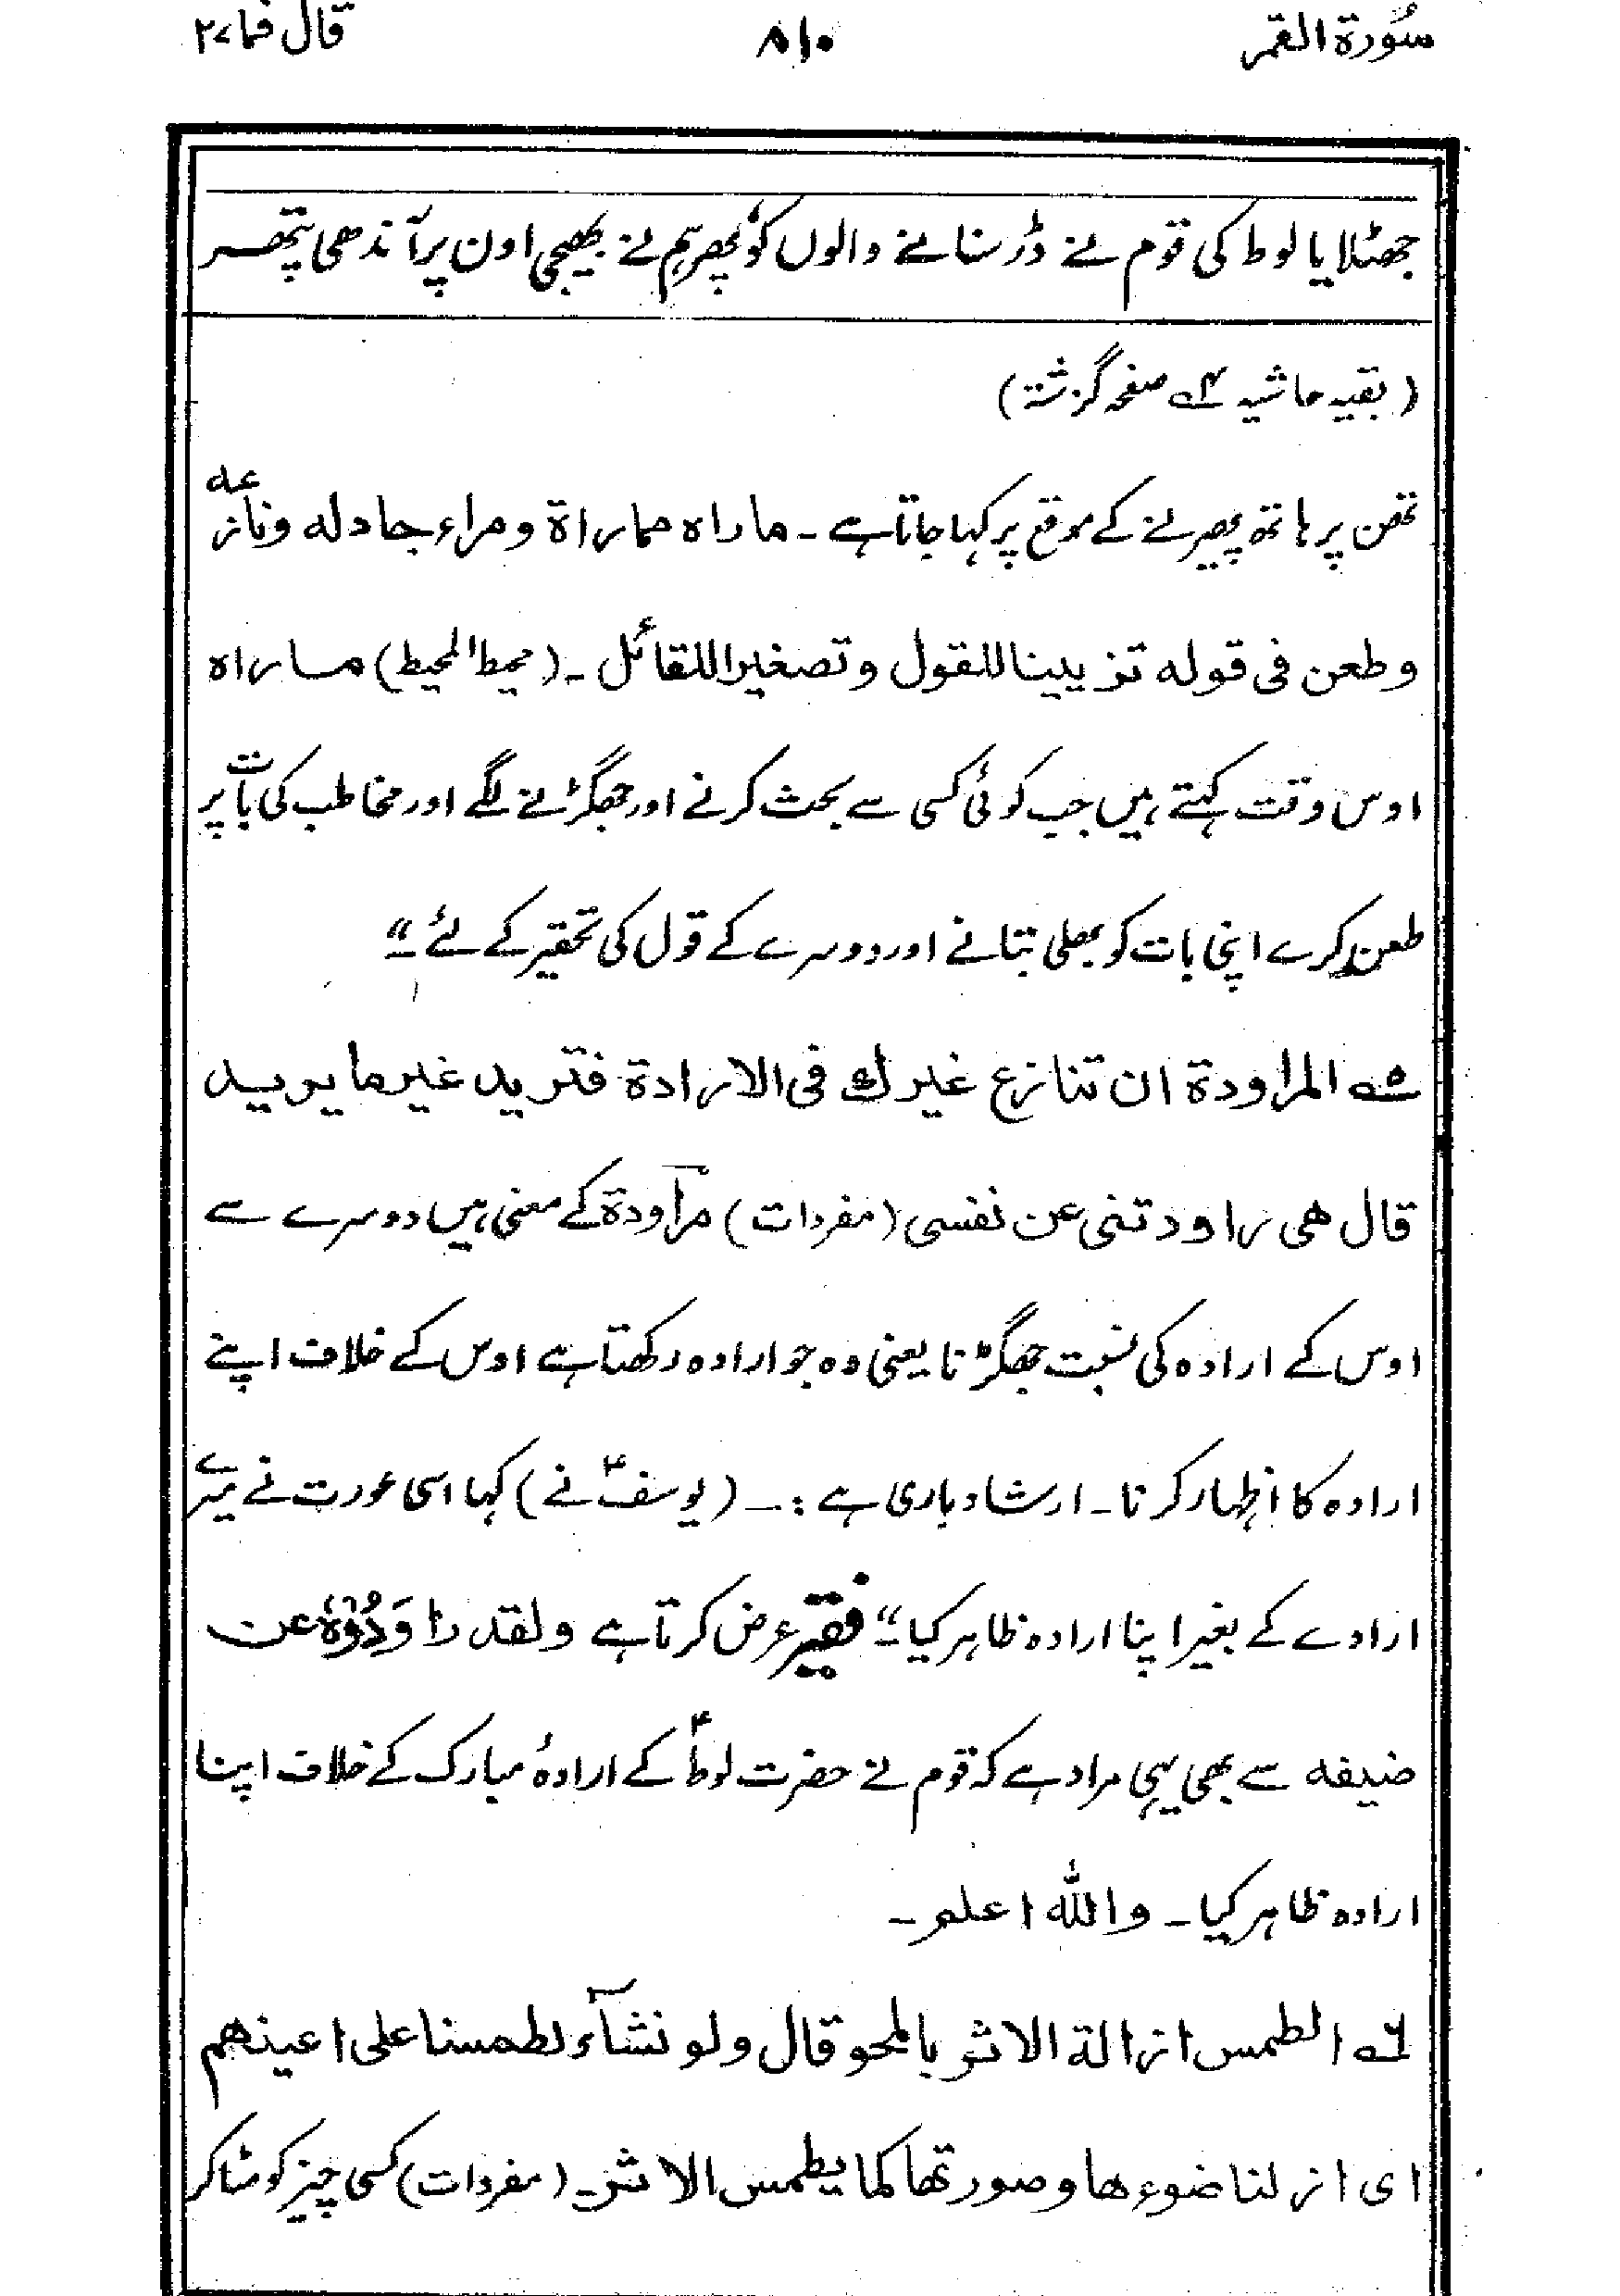 سُورة القمر
۸۱۰
قال فما ۲۷
جھٹلایا لوط کی قوم نے ڈر سنانے والوں کو پھر ہم نے بھیجی اون پر آندھی پتھر
(بقیہ حاشیہ ۴؎ صفحہ گزشتہ)
تھن پر ہاتھ پھیرنے کے موقع پر کہا جاتا ہے ۔ ماراہ مماراۃ ومراء جادلہ ونازعہ
وطعن فی قولہ تزیینا للقول وتصغیرا للقائل ۔ (محیط المحیط) ماراہ
اوس وقت کہتے ہیں جب کوئی کسی سے بحث کرنے اور جھگڑنے لگے اور مخاطب کی بات پر
طعن کرے اپنی بات کو بھلی بتانے اور دوسرے کے قول کی تحقیر کے لئے ۔"
۵؎ المراودۃ ان تنازع غیرك فی الارادۃ فترید غیر ما یرید
قال ھی راودتنی عن نفسی (مفردات) مرآودۃ کے معنی ہیں دوسرے سے
اوس کے ارادہ کی نسبت جھگڑنا یعنی وہ جو ارادہ رکھتا ہے اوس کے خلاف اپنے
ارادہ کا اظہار کرنا ۔ ارشاد باری ہے :۔ (یوسفؑ نے) کہا اسی عورت نے میرے
ارادے کے بغیر اپنا ارادہ ظاہر کیا ۔" فقیر عرض کرتا ہے ولقد راوَدُوْہُ عن
ضیفہ سے بھی یہی مراد ہے کہ قوم نے حضرت لوطؑ کے ارادۂ مبارک کے خلاف اپنا
ارادہ ظاہر کیا ۔ واللہ اعلم ۔
۶؎ الطمس ازالۃ الاثر بالمحو قال ولو نشآء لطمسنا علی اعینھم
ای ازلنا ضوءھا وصورتھا کما یطمس الاثر ۔ (مفردات) کسی چیز کو مٹا کر